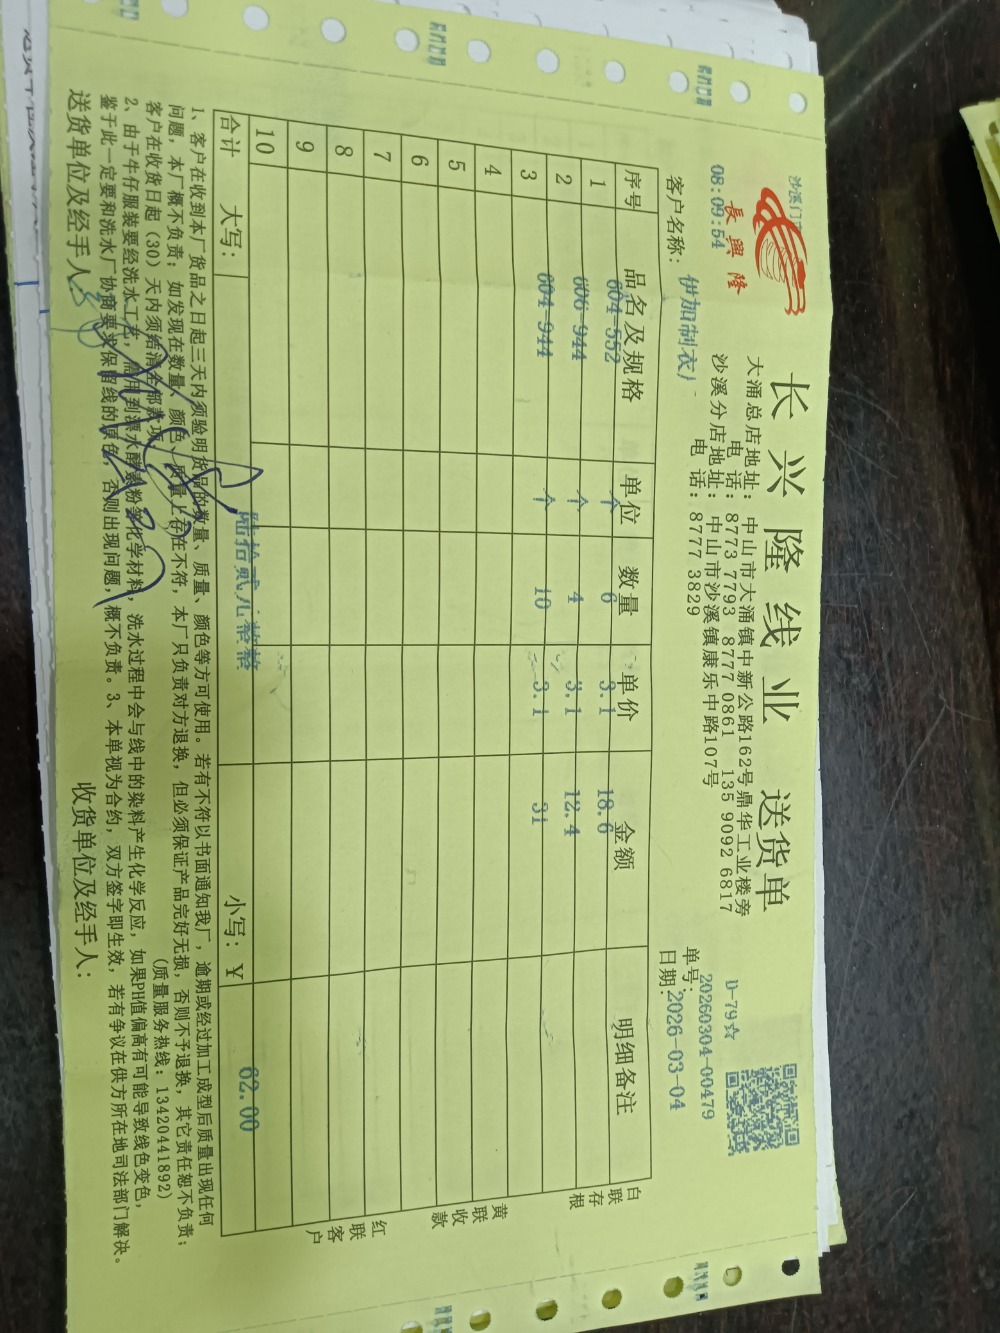 長興隆
长兴隆线业 送货单
大涌总店地址: 中山市大涌镇中新公路162号鼎华工业楼旁
电 话: 8773 7793 8777 0861 135 9092 6817
沙溪分店地址: 中山市沙溪镇康乐中路107号
电 话: 8777 3829
08:09:54
D-79☆
单号: 20260304-00479
客户名称: 伊加制衣厂
日期: 2026-03-04
序号 品名及规格 单位 数量 单价 金额 明细备注
1 604-552 个 6 3.1 18.6
2 606-944 个 4 3.1 12.4
3 604-944 个 10 3.1 31
4
5
6
7
8
9
10
合计 大写: 陆拾贰元整 小写: ¥ 62.00
白联存根
黄联收款
红联客户
1、客户在收到本厂货品之日起三天内须验明货品的数量、质量、颜色等方可使用。若有不符以书面通知我厂,逾期或经过加工成型后质量出现任何
问题,本厂概不负责;如发现在数量、颜色、质量上存在不符,本厂只负责对方退换,但必须保证产品完好无损,否则不予退换,其它责任恕不负责;
客户在收货日起(30)天内须结清全部款项。 (质量服务热线: 13420441892)
2、由于牛仔服装要经洗水工艺,需用到漂水酵素粉等化学材料,洗水过程中会与线中的染料产生化学反应,如果PH值偏高有可能导致线色变色,
鉴于此一定要和洗水厂协商要求保留线的原色,否则出现问题,概不负责。3、本单视为合约,双方签字即生效,若有争议在供方所在地司法部门解决。
送货单位及经手人: 收货单位及经手人: